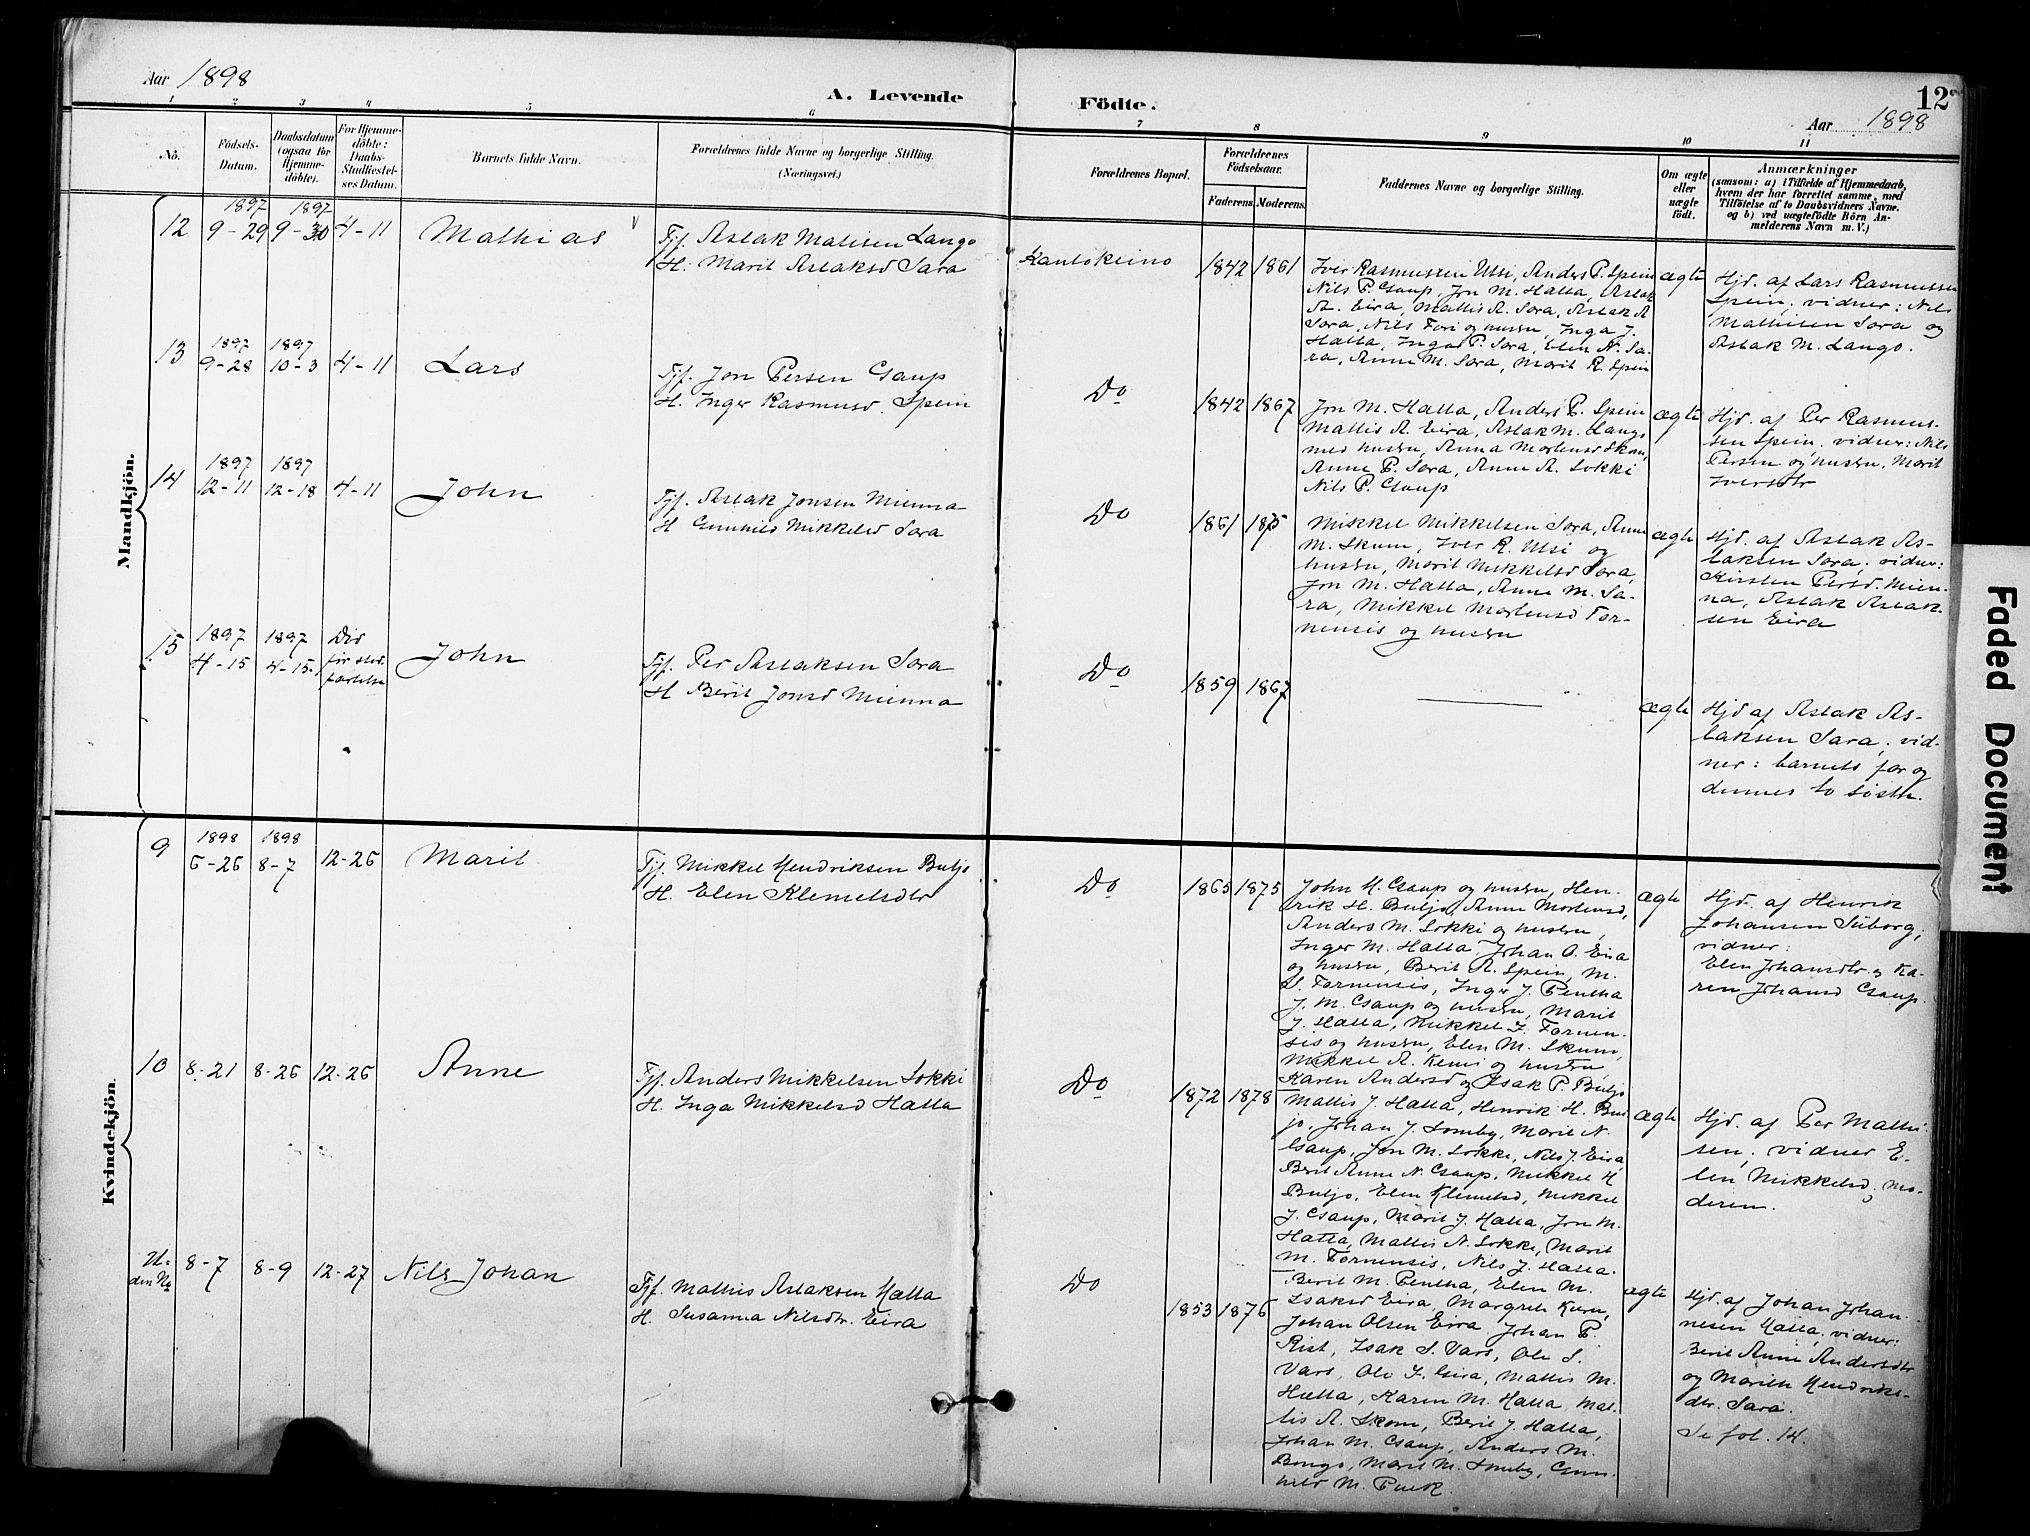 Aar 1898
A. Levende Födte.
12
Aar 1898
1 2 3 4 5 6 7 8 9 10 11
No.
Födsels-Datum.
Daabsdatum (ogsaa for Hjemme-döbte).
For Hjemme-döbte: Daabs-Stadfæstel-ses Datum.
Barnets fulde Navn.
Forældrenes fulde Navne og borgerlige Stilling.
(Næringsvei.)
Forældrenes Bopæl.
Forældrenes Födselsaar.
Faderens. Moderens.
Faddernes Navne og borgerlige Stilling.
Om ægte eller uægte födt.
Anmærkninger
(saasom: a) i Tilfælde af Hjemmedaab,
hvem der har forrettet samme, med
Tilföielse af to Daabsvidners Navne.
og b) ved uægtefödte Börn An-
melderens Navn m. V.)
Mandkjön.
12 1897 9-29 1897 9-30 4-11 Mathias
Fjf. Aslak Matisen Lango
H. Marit Aslaksd Sara
Kautokeino 1842 1861
Iver Rasmussen Utsi, Anders P. Spein
Nils P. Gaup, Jon M. Hatta, Aslak
A. Eira, Mattis A. Sara, Aslak A
Sara, Nils Tori og hustru, Inga J.
Hatta, Inga P. Sara, Elen N. Sa-
ra, Anne M. Sara, Marit R. Spein
ægte
Hjd. af Lars Rasmussen
Spein, vidner: Nils
Mathisen Sara og
Aslak M. Lango.
13 1897 9-28 1897 10-3 4-11 Lars
Fjf. Jon Persen Gaup
H. Inger Rasmusd. Spein
Do 1842 1867
Jon M. Hatta, Anders P. Spein
Mattis A. Eira, Aslak M. Lango
med hustru, Anna Mortensd Skum,
Anne P. Sara, Anne A. Sokki
Nils P. Gaup
ægte
Hjd. af Per Rasmus-
sen Spein. vidner: Nils
Persen og hustru, Marit
Iversdtr
14 1897 12-11 1897 12-18 4-11 John
Fjf. Aslak Jonsen Mienna
H Gunhild Mikkelsd Sara
Do 1861 1875
Mikkel Mikkelsen Sara, Anne
M. Skum, Iver R. Utsi og
hustru, Marit Mikkelsd Sara,
Jon M. Hatta, Anne M. Sa-
ra, Mikkel Mortensd Tor-
nensis og hustru
ægte
Hjd. af Aslak As-
laksen Sara, vidner:
Kirsten Persd. Mien-
na, Aslak Aslak-
sen Eira
15 1897 4-15 1897 4-15 Død før stad-fæstelse John
Fjf. Per Aslaksen Sara
H Berit Jonsd Mienna
Do 1859 1867
ægte
Hjd af Aslak As-
laksen Sara, vid-
ner: barnets far og
dennes to søstre.
Kvindekjön.
9 1898 6-26 1898 8-7 12-26 Marit
Fjf. Mikkel Hendriksen Buljo
H. Elen Klemetsdtr
Do 1865 1875
John H. Gaup og hustru, Hen-
rik H. Buljo, Anne Mortensd,
Anders M. Sokki og hustru,
Inger M. Hatta, Johan O. Eira
og hustru, Berit A. Spein, M.
S. Tornensis, Inger J. Pentha
J. M. Gaup og hustru, Marit
J. Hatta, Mikkel J. Tornen-
sis og hustru, Elen M. Skum,
Mikkel A. Kemi og hustru
Karen Andersd og Isak P. Buljo
ægte
Hjd. af Henrik
Johansen Siiborg,
vidner:
Elen Johansdtr. og Ka-
ren Johansd Gaup.
10 8-21 8-26 12-26 Anne
Fjf. Anders Mikkelsen Sokki
H. Inga Mikkelsd Hatta
Do 1872 1878
Mattis J. Hatta, Henrik H. Bul-
jo, Johan J. Somby, Marit N.
Gaup, Jon M. Sokke, Nils J. Eira,
Berit Anne N. Gaup, Mikkel H
Buljo, Elen Klemetsd, Mikkel
J. Gaup, Marit J. Hatta, Jon M.
Hatta, Mattis N. Sokke, Marit
M. Tornensis, Nils J. Hatta.
ægte
Hjd. af Per Mathi-
sen, vidner E-
len Mikkelsd, mo-
deren.
U-den No 8-7 8-9 12-27 Nils Johan
Fjf. Mathis Aslaksen Hatta
H. Susanna Nilsdtr. Eira
Do 1853 1876
Berit M. Pentha, Elen M.
Isaksd Eira, Margreth
Johan Olsen Eira Johan P
Rist, Isak S. Vars, Ole S.
Vars, Ole I. Eira, Mattis M.
Hatta, Karen M. Hatta, Mat-
tis A. Skom, Berit J. Hatta,
Johan M. Gaup, Anders M.
Bongo, Marit M. Somby, Gun-
hild M. Puck.
ægte
Hjd. af Johan Johan-
nesen Hatta, vidner:
Berit Anne Andersdtr
og Marith Hendriks-
dtr. Sara.
Se fol. 14.
Faded Document